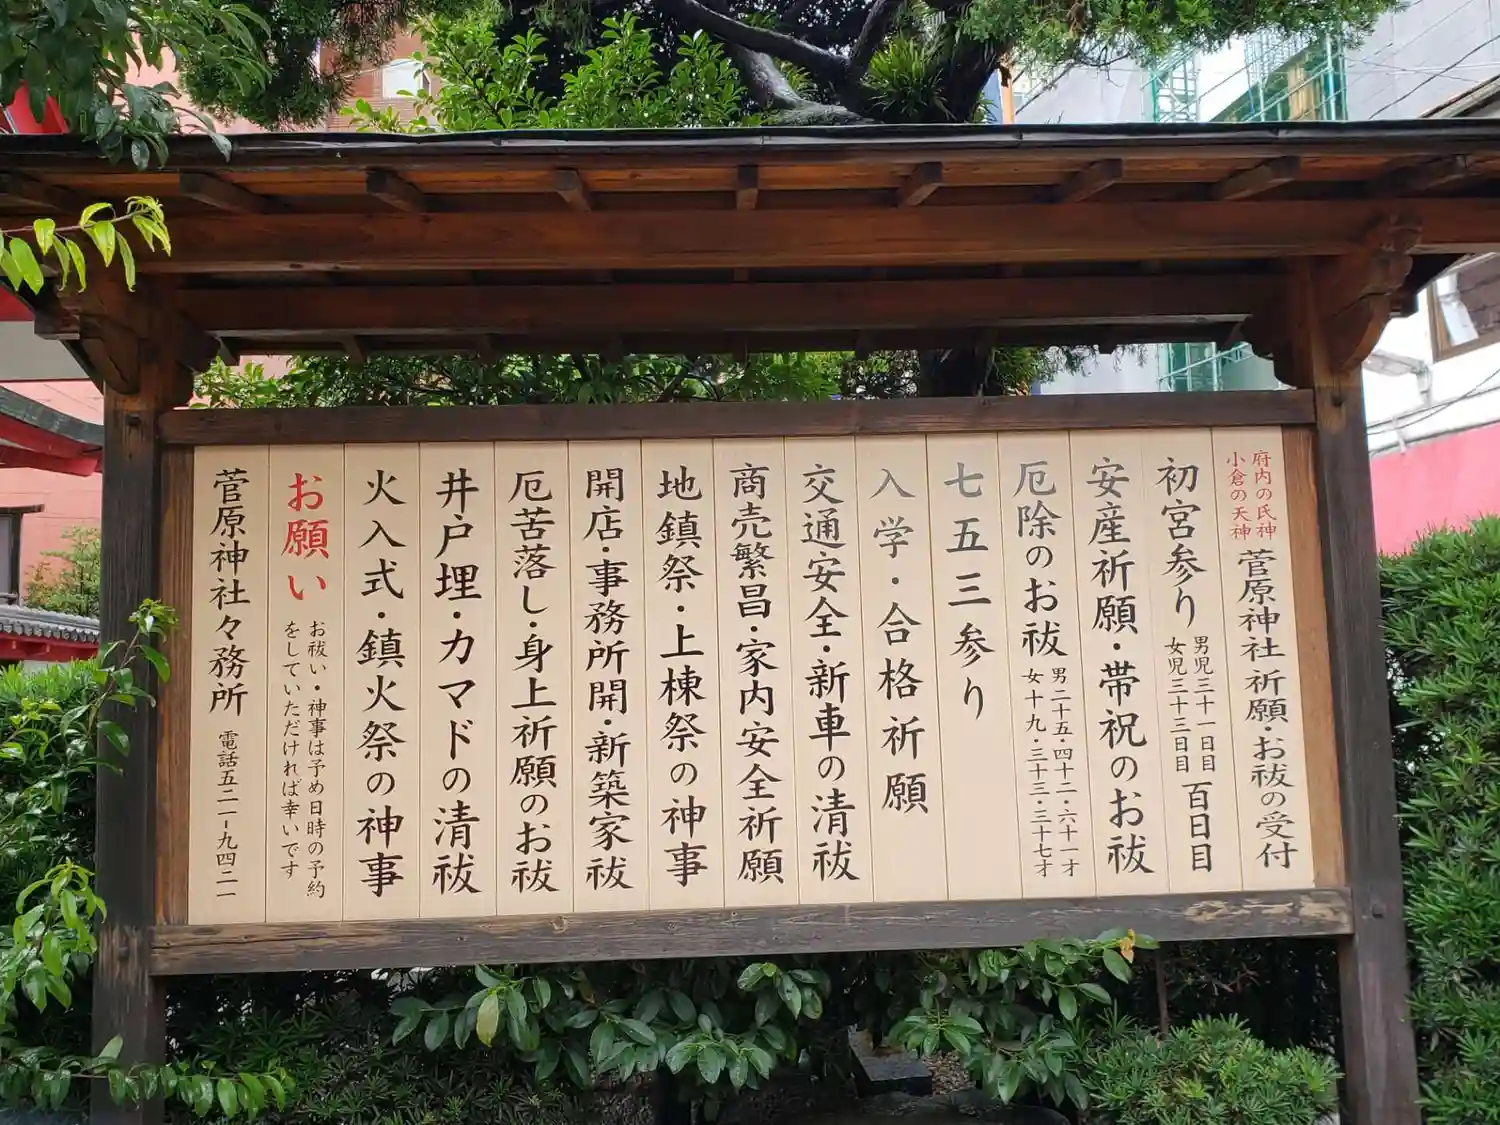 府内の氏神
小倉の天神
菅原神社 祈願・お祓の受付
初宮参り 男児三十一日目 女児三十三日目 百日目
安産祈願・帯祝のお祓
厄除のお祓 男二十五・四十二・六十一才 女十九・三十三・三十七才
七五三参り
入学・合格祈願
交通安全・新車の清祓
商売繁昌・家内安全祈願
地鎮祭・上棟祭の神事
開店・事務所開・新築家祓
厄苦落し・身上祈願のお祓
井戸埋・カマドの清祓
火入式・鎮火祭の神事
お願い
お祓い・神事は予め日時の予約
をしていただければ幸いです
菅原神社々務所 電話五二一-九四二一